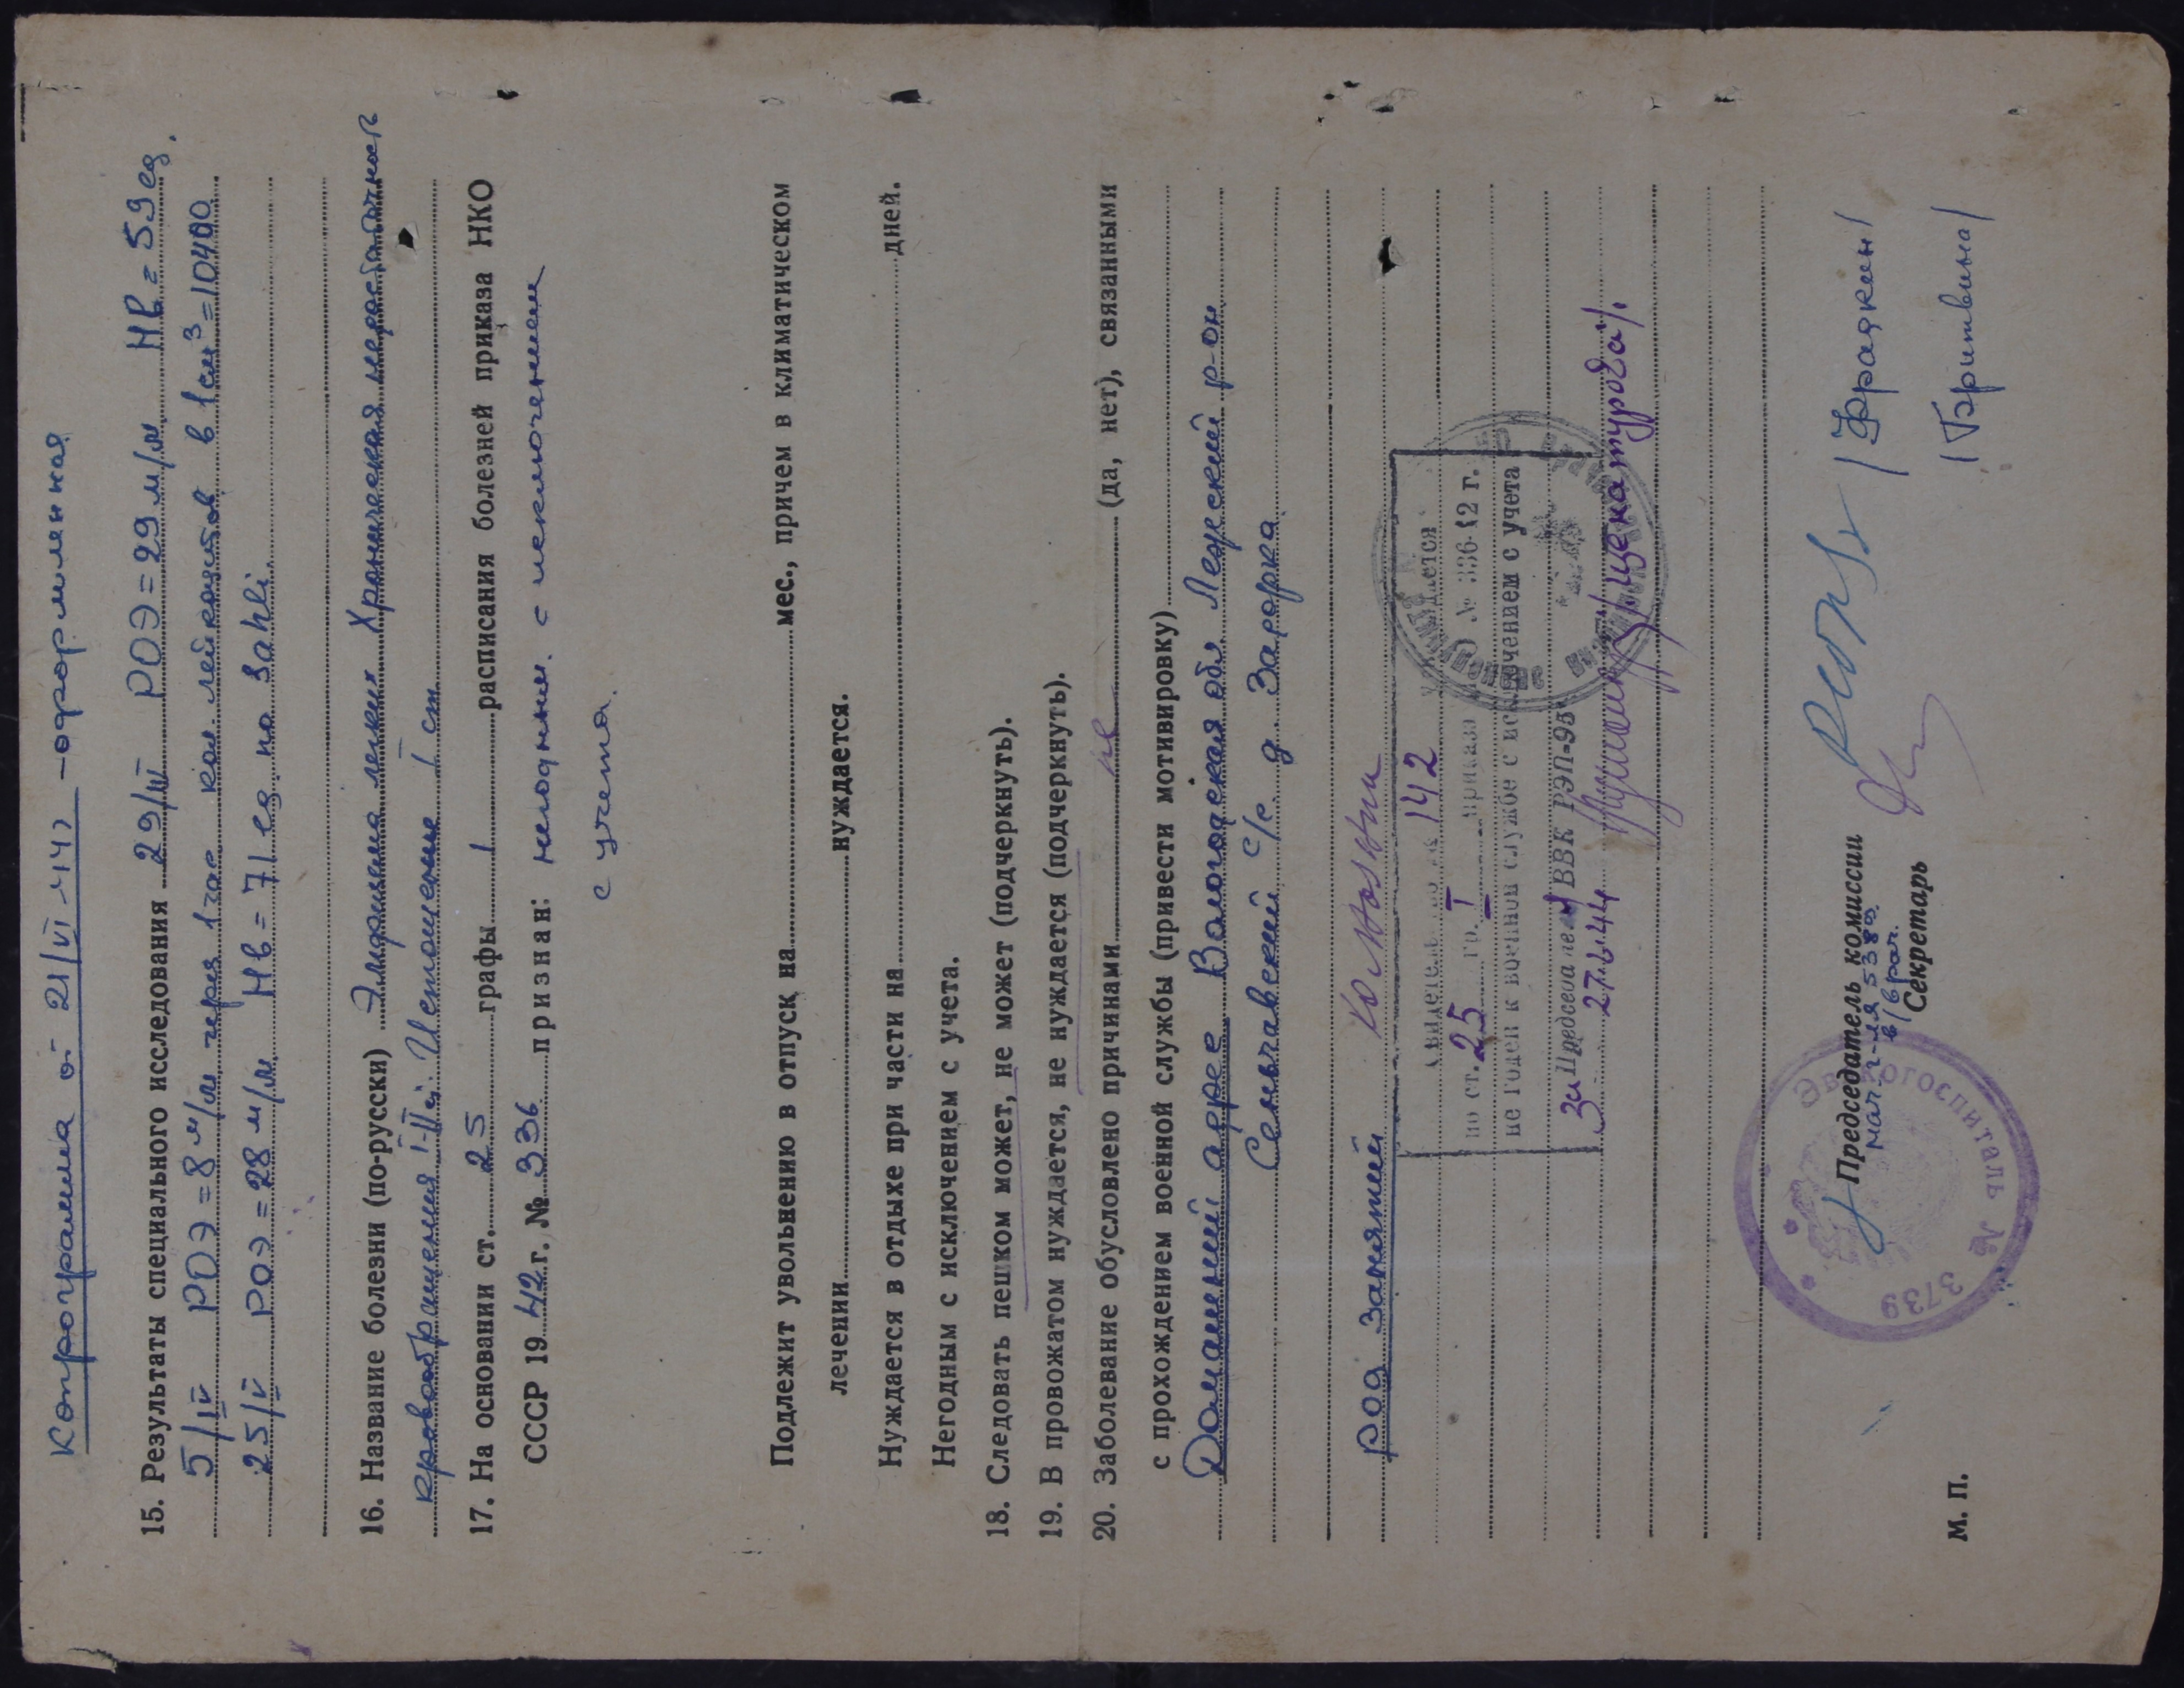 Копрограмма от 21/VI-44г – оформленная
15. Результаты специального исследования 29/III РОЭ = 29 м/м НВ = 59 ед.
5/IV РОЭ = 8 м/м через 1 час кол. лейкоцитов в 1 см³ = 10400
25/V РОЭ = 28 м/м Нв = 71 ед по Sahli.
16. Название болезни (по-русски) Эмфизема легких Хроническая недостаточность
кровообращения I-II ст. Истощение I ст.
17. На основании ст. 25 графы 1 расписания болезней приказа НКО
СССР 19 42 г. № 336 признан: негодным с исключением
с учета.
Подлежит увольнению в отпуск на мес., причем в климатическом
лечении нуждается.
Нуждается в отдыхе при части на дней.
Негодным с исключением с учета.
18. Следовать пешком может, не может (подчеркнуть).
19. В провожатом нуждается, не нуждается (подчеркнуть).
20. Заболевание обусловлено причинами не (да, нет), связанными
с прохождением военной службы (привести мотивировку)
Домашний адрес Вологодская обл. Лежский р-он
Сеньгавский с/с д. Заворка.
род занятий
142
по ст. 25 гр. I приказа № 336-42 г.
не годен к военной службе с исключением с учета
за Председателя ВВК РЭП-95
27.6.44
Председатель комиссии
/Фрадкин/
Секретарь
/Бритвина/
Эвакогоспиталь № 3739
М. П.